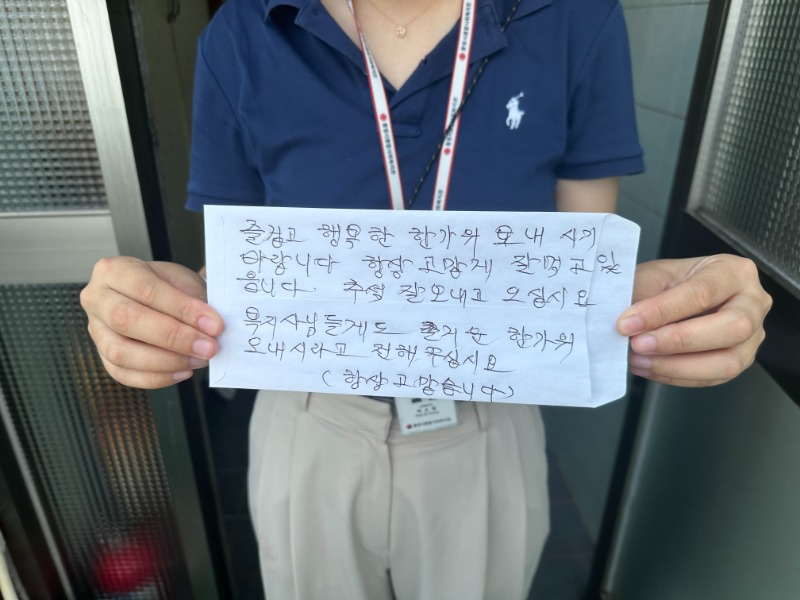 즐겁고 행복한 한가위 보내 시기
바랍니다 항상 고맙게 잘먹고 있
읍니다. 추석 잘보내고 오십시요
복지사님들게도 즐거운 한가위
보내시라고 전해주십시요
(항상고맙습니다)